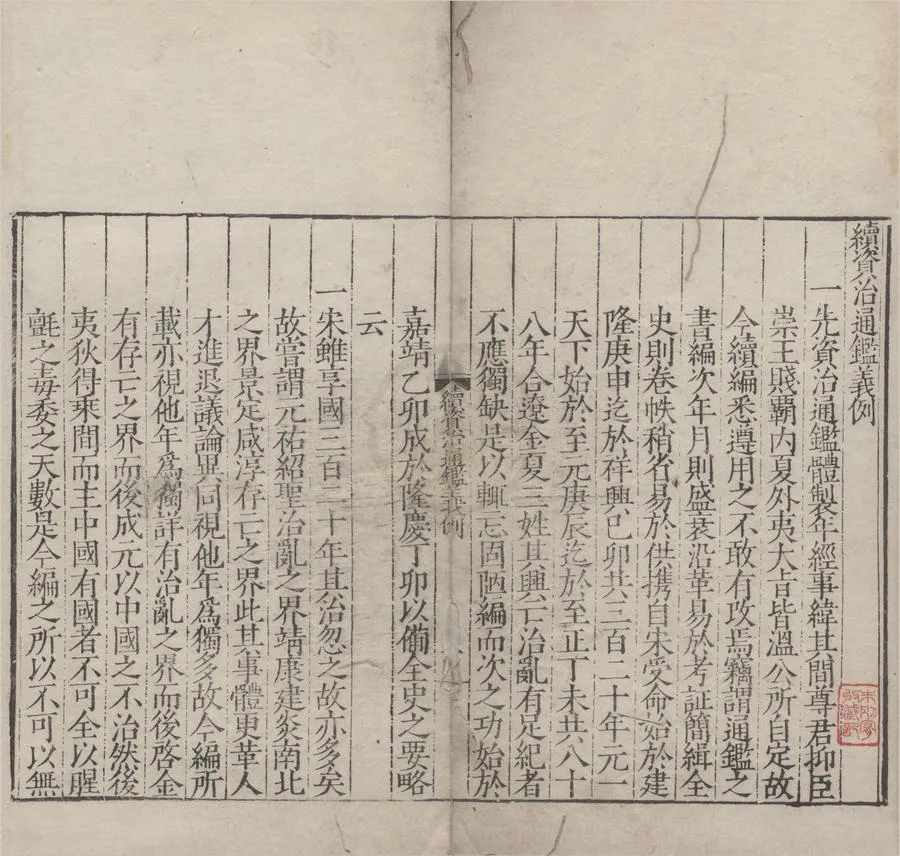 續資治通鑑義例
一先資治通鑑體製年經事緯其間尊君抑臣
崇王賤覇內夏外夷大旨皆溫公所自定故
今續編悉遵用之不敢有攺焉竊謂通鑑之
書編次年月則盛衰沿革易於考証簡緝全
史則卷帙稍省易於供携自宋受命始於建
隆庚申迄於祥興巳卯共三百二十年元一
天下始於至元庚辰迄於至正丁未共八十
八年合遼金夏三姓其興亡治亂有足紀者
不應獨缺是以輒忘固陋編而次之功始於
續資治通鑑義例
一
嘉靖乙卯成於隆慶丁卯以備全史之要略
云
一宋雖享國三百二十年其治忽之故亦多矣
故嘗謂元祐紹聖治亂之界靖康建炎南北
之界景定咸淳存亡之界此其事體更革人
才進退議論異同視他年爲獨多故今編所
載亦視他年爲獨詳有治亂之界而後啓金
有存亡之界而後成元以中國之不治然後
夷狄得乘間而主中國有國者不可全以腥
氈之毒委之天數是今編之所以不可以無